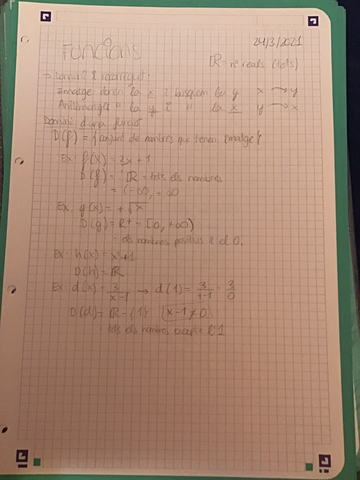 24/3/2021
Funcions
ℝ = nº reals (tots)
→ Domini i recorregut:
Imatge donen la x i busquem la y x → y
Antiimatge " la y i " la x y → x
Domini d'una funció
D(f) = {conjunt de nombres que tenen imatge}
Ex: f(x) = 2x + 1
D(f) = ℝ = tots els nombres
= (-∞, +∞
Ex: g(x) = +√x
D(g) = R+ = [0, +∞)
els nombres positius i el 0.
Ex: h(x) = x² + 1
D(h) = ℝ
Ex: d(x) = 3/(x-1) → d(1) = 3/(1-1) = 3/0
D(d) = ℝ - {1} x-1 ≠ 0
tots els nombres excepte l'1